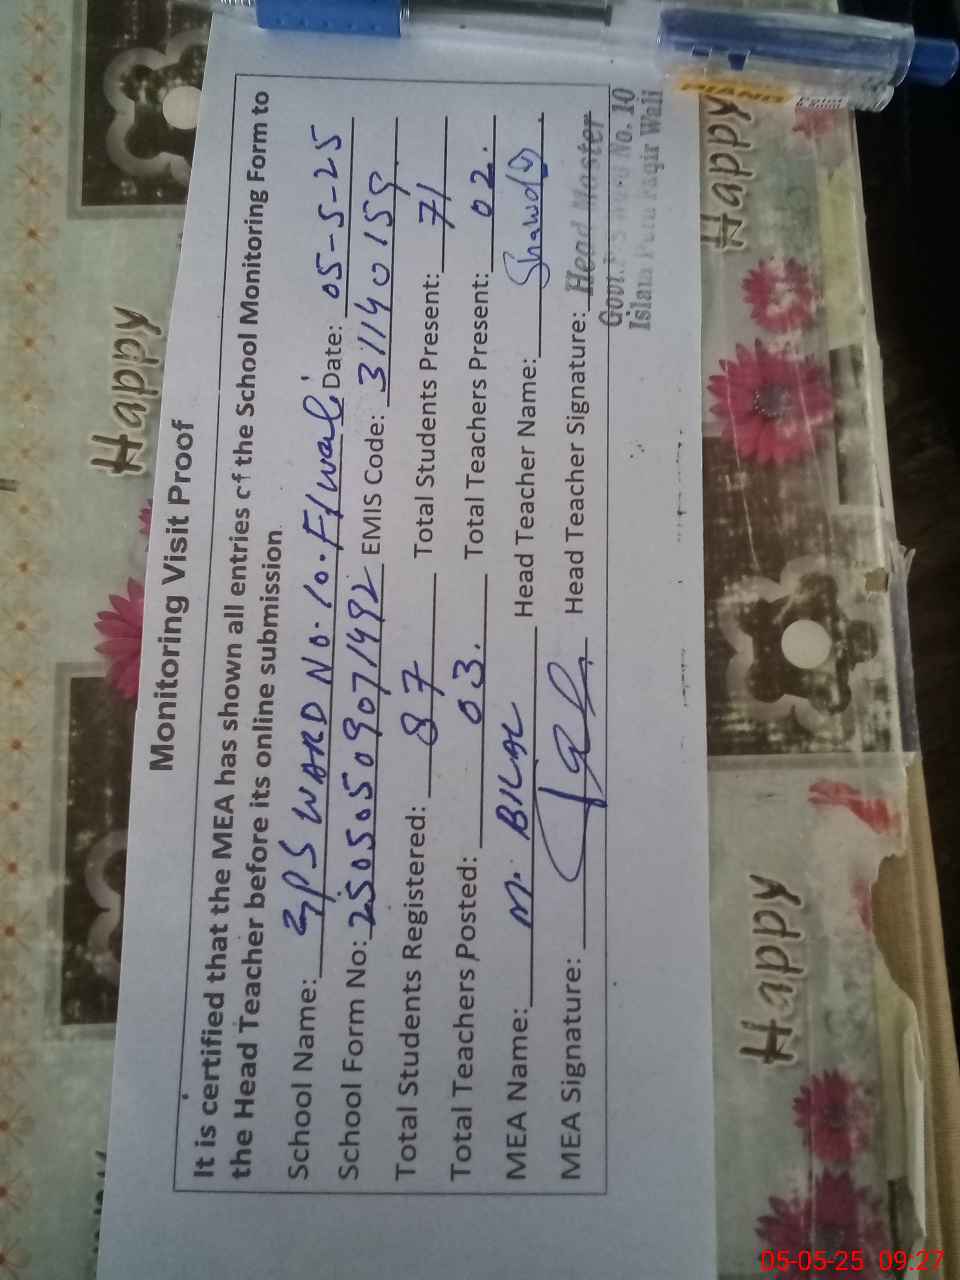 Monitoring Visit Proof
It is certified that the MEA has shown all entries of the School Monitoring Form to
the Head Teacher before its online submission
School Name: GPS WARD No. 10. F/wali Date: 05-5-25
School Form No: 25050509071492 EMIS Code: 31140155
Total Students Registered: 87 Total Students Present: 71
Total Teachers Posted: 03. Total Teachers Present: 02.
MEA Name: M. BILAL Head Teacher Name:
MEA Signature: Head Teacher Signature:
Head Master
Govt. P/S Ward No. 10
Islam Pura Faqir Wali
Happy
Happy
Happy
PIANO
05-05-25 09:27